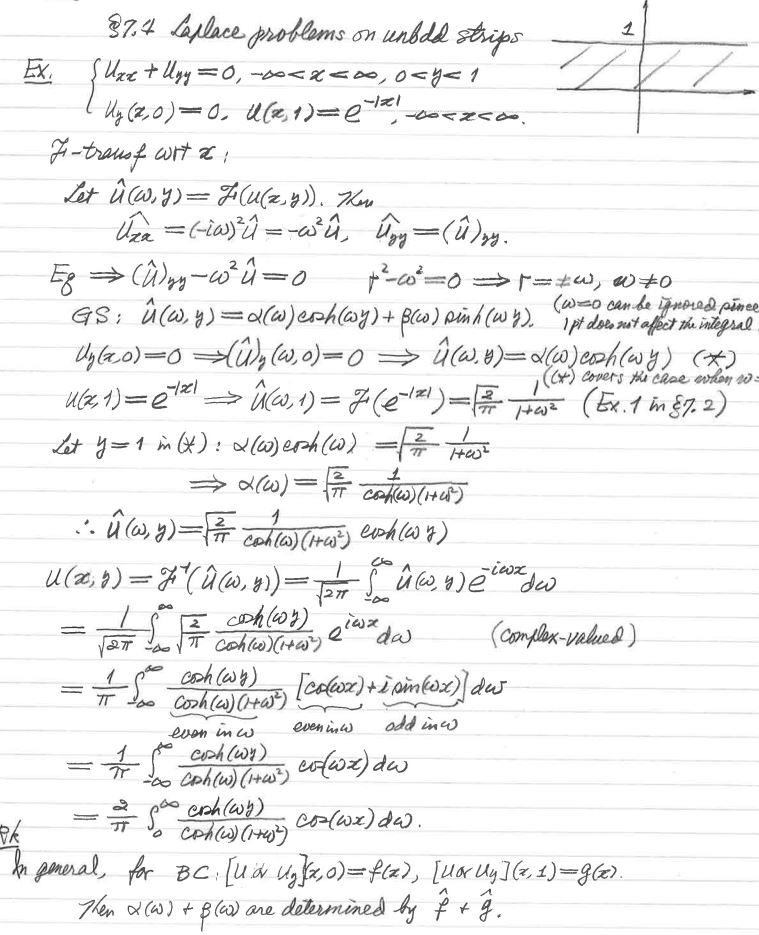 §7.4 Laplace problems on unbdd strips
1
Ex. { Uxx + Uyy = 0, -∞ < x < ∞, 0 < y < 1
Uy(x,0) = 0, U(x,1) = e^{-|x|}, -∞ < x < ∞.
F-transf wrt x :
Let Û(ω,y) = F(U(x,y)). Then
Ûxx = (-iω)²Û = -ω²Û, Ûyy = (Û)yy.
Eq ⟹ (Û)yy - ω²Û = 0 r² - ω² = 0 ⟹ r = ±ω, ω ≠ 0
(ω=0 can be ignored since
GS : Û(ω,y) = α(ω)cosh(ωy) + β(ω) sinh(ωy). 1 pt does not affect the integral
Uy(x,0) = 0 ⟹ (Û)y(ω,0) = 0 ⟹ Û(ω,y) = α(ω)cosh(ωy) (*)
((*) covers the case when ω=
U(x,1) = e^{-|x|} ⟹ Û(ω,1) = F(e^{-|x|}) = √(2/π) 1/(1+ω²) (Ex.1 in §7.2)
Let y = 1 in (*) : α(ω)cosh(ω) = √(2/π) 1/(1+ω²)
⟹ α(ω) = √(2/π) 1/(cosh(ω)(1+ω²))
∴ Û(ω,y) = √(2/π) 1/(cosh(ω)(1+ω²)) cosh(ωy)
U(x,y) = F⁻¹(Û(ω,y)) = 1/√(2π) ∫_{-∞}^{∞} Û(ω,y) e^{-iωx} dω
= 1/√(2π) ∫_{-∞}^{∞} √(2/π) cosh(ωy)/(cosh(ω)(1+ω²)) e^{iωx} dω (complex-valued)
= 1/π ∫_{-∞}^{∞} cosh(ωy)/(cosh(ω)(1+ω²)) [cos(ωx) + i sin(ωx)] dω
even in ω even in ω odd in ω
= 1/π ∫_{-∞}^{∞} cosh(ωy)/(cosh(ω)(1+ω²)) cos(ωx) dω
= 2/π ∫_0^{∞} cosh(ωy)/(cosh(ω)(1+ω²)) cos(ωx) dω.
Rk
In general, for BC : [U or Uy](x,0) = f(x), [U or Uy](x,1) = g(x).
Then α(ω) + β(ω) are determined by f̂ + ĝ.